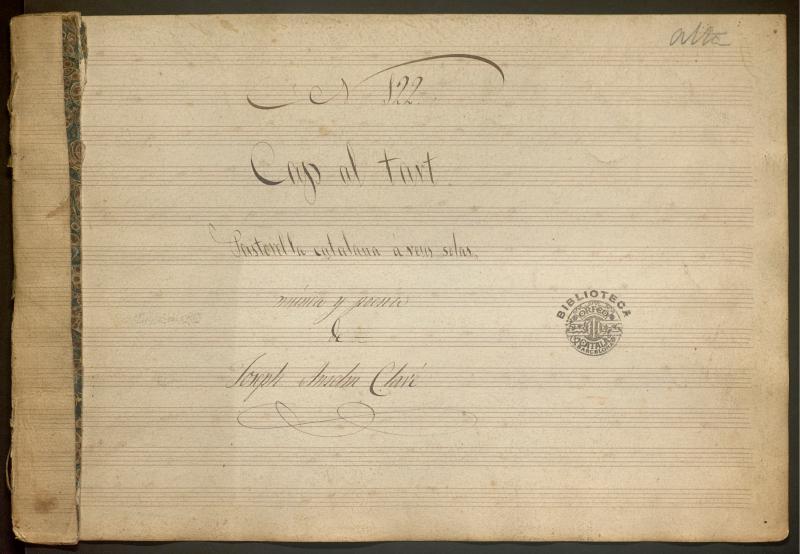 N 122.
Cap al tart
Pastorel·la catalana á veus solas.
música y poesia
de
Joseph Anselm Clavé
BIBLIOTECA
ORFEÓ
CATALÀ
BARCELONA